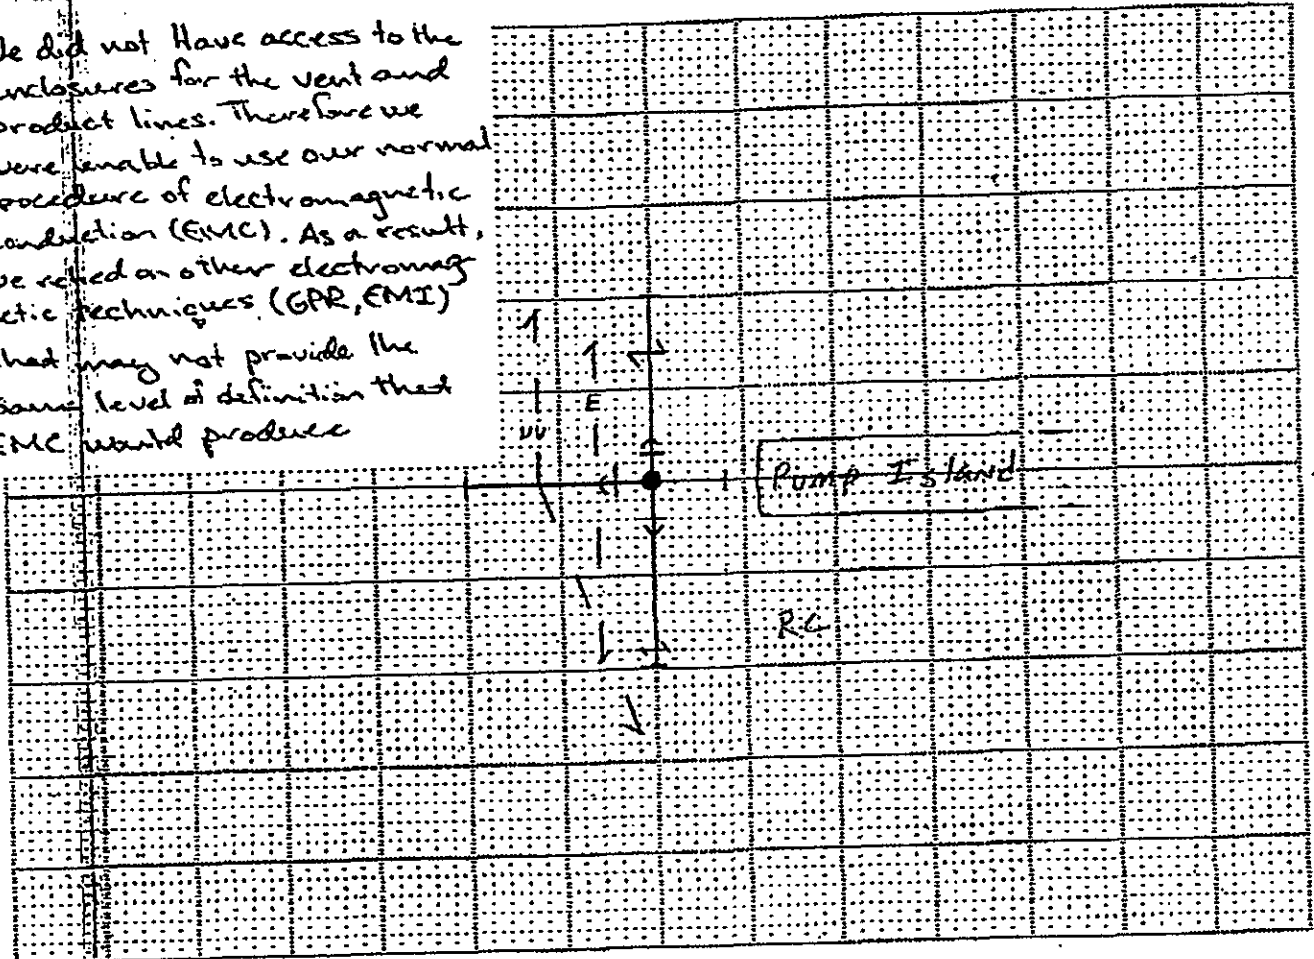 We did not Have access to the
enclosures for the vent and
product lines. Therefore we
were unable to use our normal
procedure of electromagnetic
conduction (EMC). As a result,
we relied on other electromag
netic techniques (GPR, EMI)
that may not provide the
same level of definition that
EMC would produce
E
Pump Island
RC